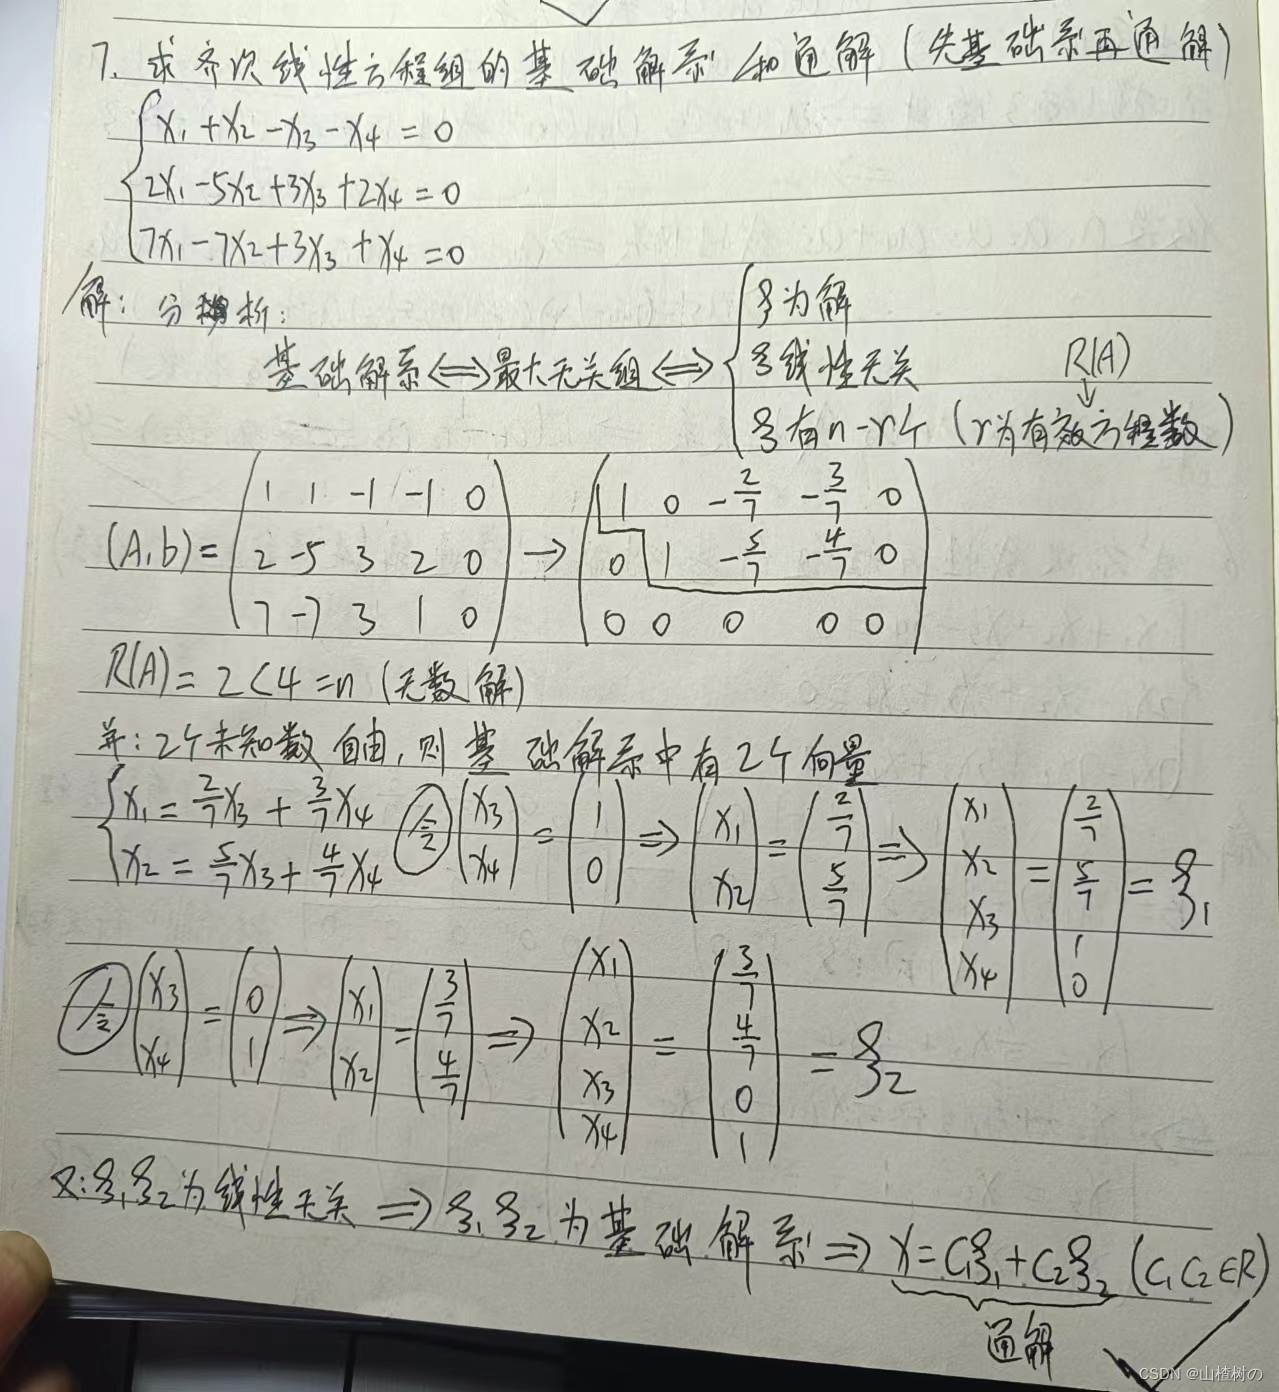 7. 求齐次线性方程组的基础解系和通解(先基础系再通解)
x₁+x₂-x₃-x₄=0
2x₁-5x₂+3x₃+2x₄=0
7x₁-7x₂+3x₃+x₄=0
解: 分析:
ξ为解
基础解系⇔最大无关组⇔ ξ线性无关 R(A)
ξ有n-r个 (r为有效方程数)
1 1 -1 -1 0 1 0 -2/7 -3/7 0
(A,b)= 2 -5 3 2 0 → 0 1 -5/7 -4/7 0
7 -7 3 1 0 0 0 0 0 0
R(A)=2<4=n (无数解)
并:2个未知数自由,则基础解系中有2个向量
x₁=2/7x₃+3/7x₄ 令 (x₃ x₄)=(1 0)⇒(x₁ x₂)=(2/7 5/7)⇒(x₁ x₂ x₃ x₄)=(2/7 5/7 1 0)=ξ₁
x₂=5/7x₃+4/7x₄
令 (x₃ x₄)=(0 1)⇒(x₁ x₂)=(3/7 4/7)⇒(x₁ x₂ x₃ x₄)=(3/7 4/7 0 1)=ξ₂
又:ξ₁ξ₂为线性无关⇒ξ₁ξ₂为基础解系⇒x=C₁ξ₁+C₂ξ₂ (C₁C₂∈R)
通解
CSDN @山楂树の